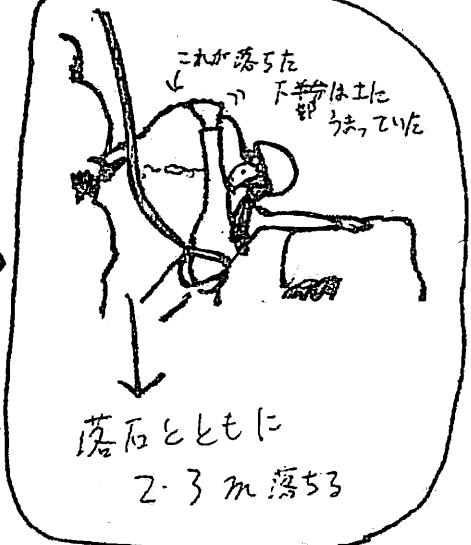 これが落ちた
下部は土に
うまっていた
落石とともに
2・3m落ちる